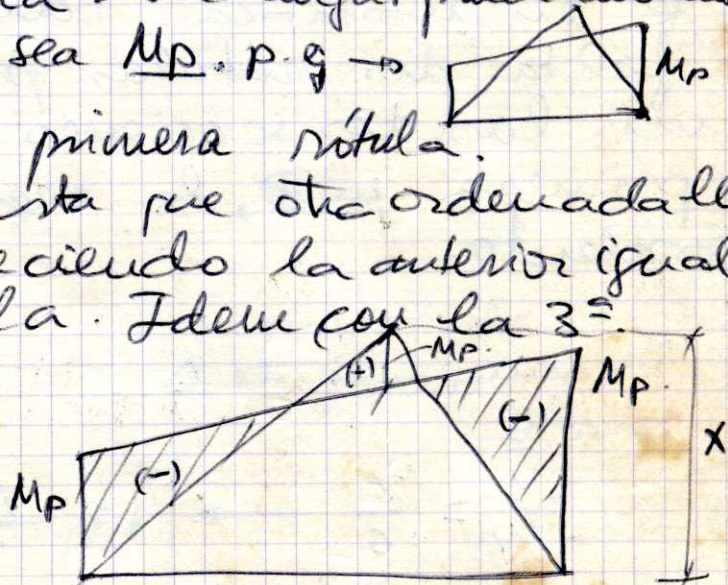 sea Mp. p.ej →
Mp
primera rótula.
que otra ordenada
la anterior igual
la. Idem con la 3ª.
(+) Mp.
Mp.
(-) (-)
X
Mp